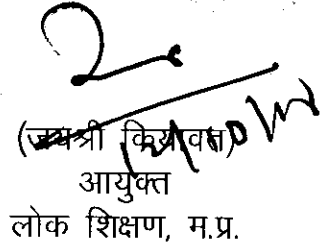 (जयश्री कियावत)
आयुक्त
लोक शिक्षण, म.प्र.